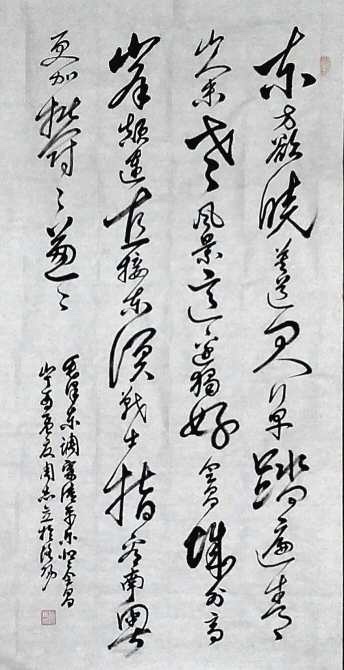 东方欲晓莫道君行早踏遍青
山人未老风景这边独好会昌城外高
峰颠连直接东溟战士指看南粤
更加郁々葱々
毛泽东调寄清平乐会昌
夏周志立於洛阳